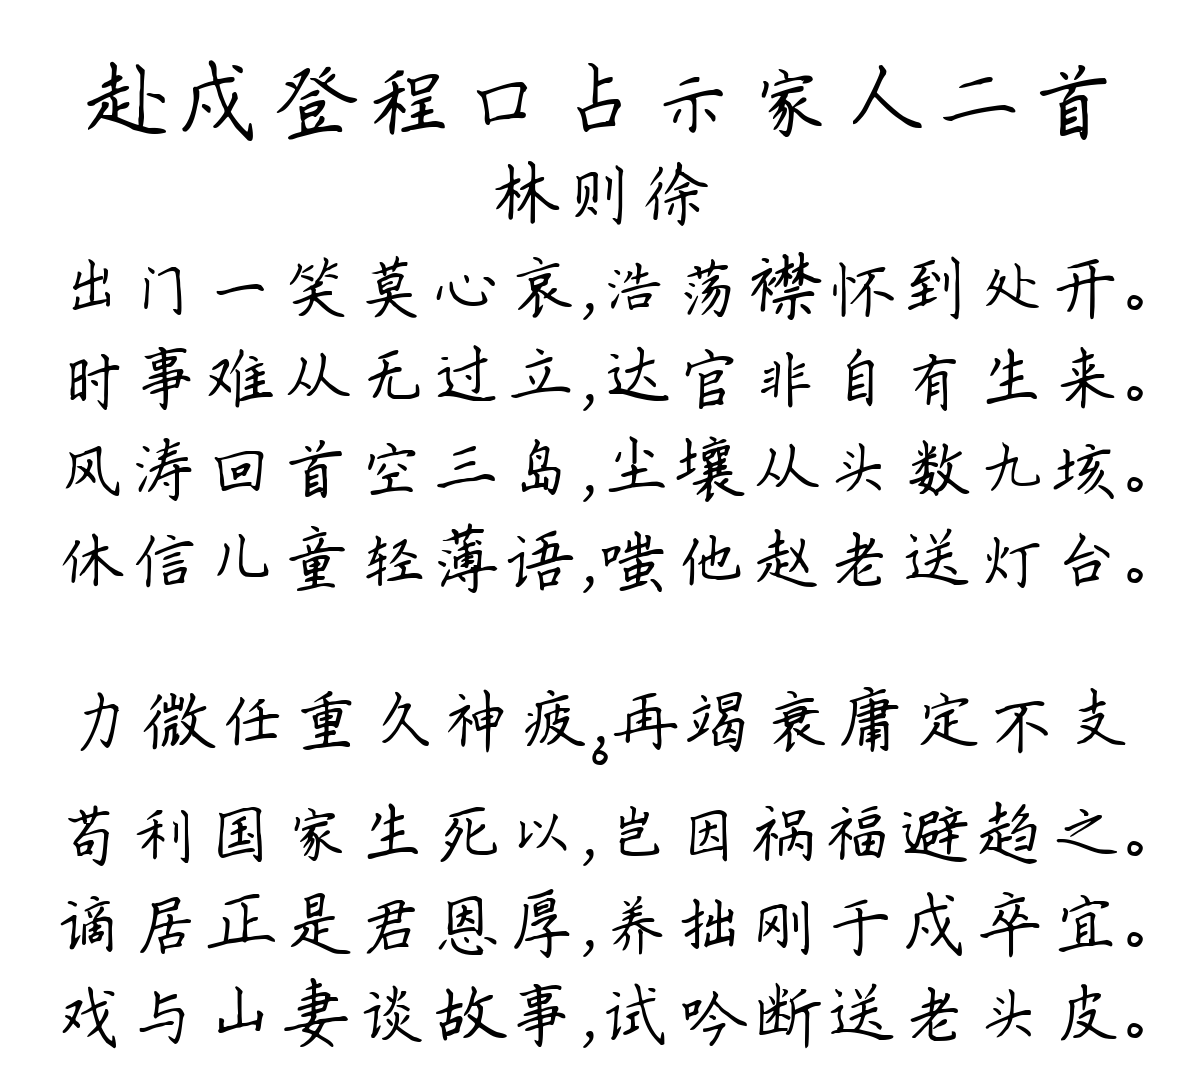 赴戍登程口占示家人二首
林则徐
出门一笑莫心哀,浩荡襟怀到处开。
时事难从无过立,达官非自有生来。
风涛回首空三岛,尘壤从头数九垓。
休信儿童轻薄语,嗤他赵老送灯台。
力微任重久神疲,再竭衰庸定不支。
苟利国家生死以,岂因祸福避趋之。
谪居正是君恩厚,养拙刚于戍卒宜。
戏与山妻谈故事,试吟断送老头皮。